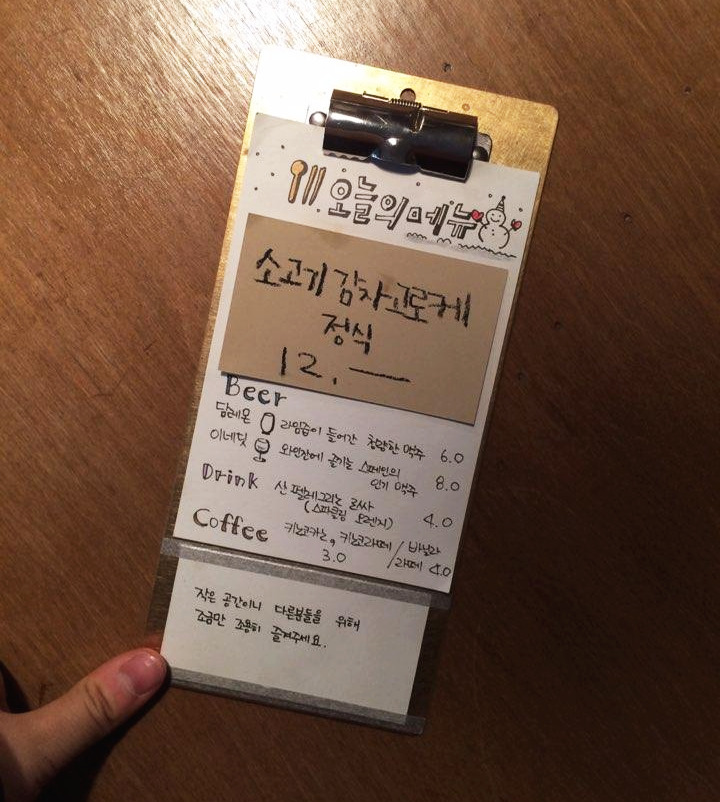 오늘의메뉴
소고기 감자고로케
정식
12.—
Beer
담레몬 라임즙이 들어간 청량한 맥주 6.0
이네딧 와인잔에 즐기는 스페인의
인기 맥주 8.0
Drink 산 펠레그리노 로싸
(스파클링 오렌지) 4.0
Coffee 키노코라떼 / 바닐라
3.0 라떼 4.0
작은 공간이니 다른분들을 위해
조금만 조용히 즐겨주세요.